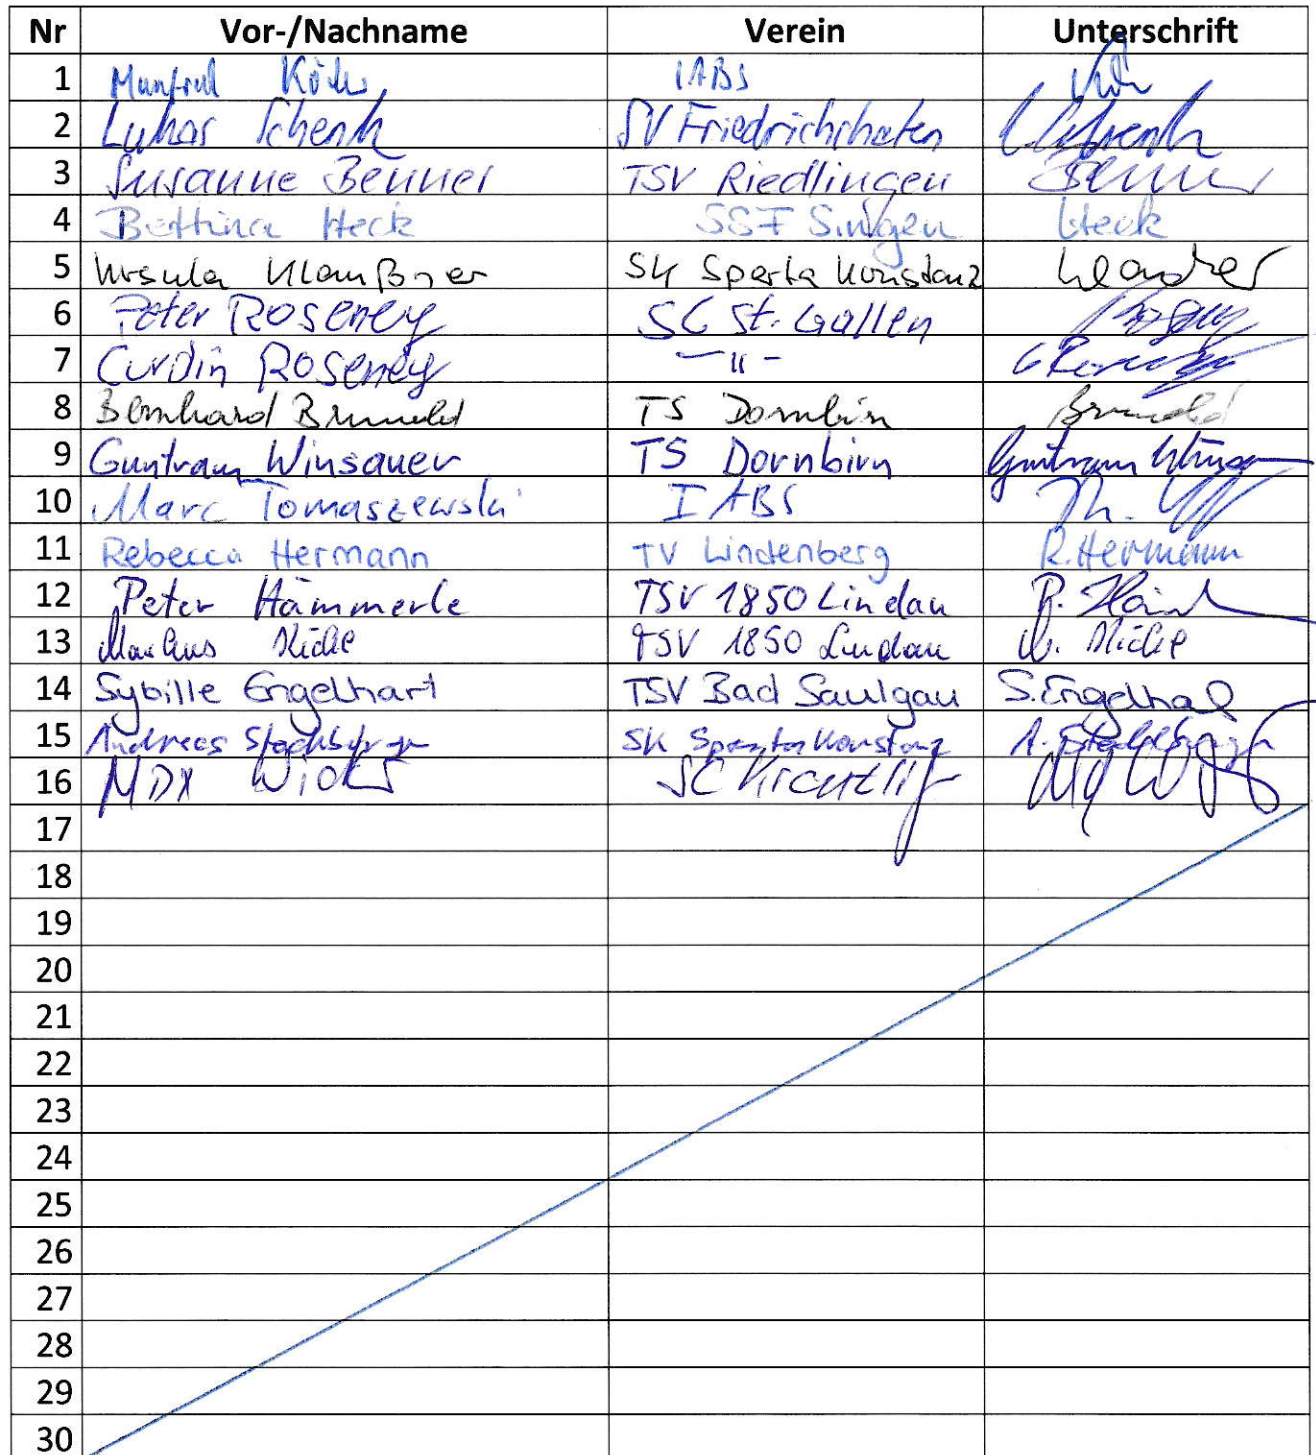 Nr Vor-/Nachname Verein Unterschrift
1 Manfred IABS
2 Lukas Schenk SV Friedrichshafen Schenk
3 Susanne Benner TSV Riedlingen Benner
4 Bettina Heck SSF Singen Heck
5 Ursula Klaußner SK Sparta Konstanz
6 Peter Roseney SC St. Gallen
7 Curdin Roseney - " -
8 Bernhard TS Dornbirn
9 Guntram Winsauer TS Dornbirn Guntram
10 Marc Tomaszewski IABS
11 Rebecca Hermann TV Lindenberg R. Hermann
12 Peter Hämmerle TSV 1850 Lindau P.
13 Markus TSV 1850 Lindau
14 Sybille Engelhart TSV Bad Saulgau S. Engelha
15 Andreas SK Sparta Konstanz A.
16 SC
17
18
19
20
21
22
23
24
25
26
27
28
29
30